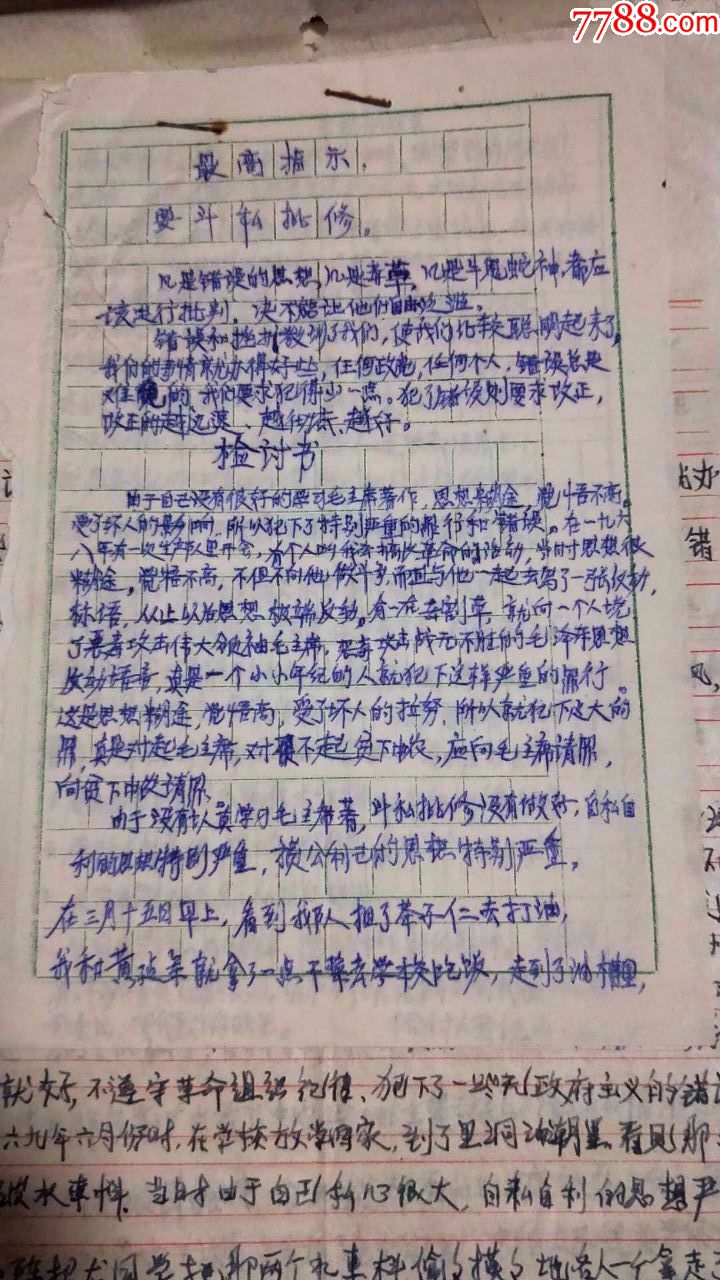 7788.com
最高指示.
要斗私批修。
凡是错误的思想,凡是毒草,凡是牛鬼蛇神,都应
该进行批判,决不能让他们自由泛滥。
错误和挫折教训了我们,使我们比较聪明起来了,
我们的事情就办得好些,任何政党,任何个人,错误总是
难免的,我们要求犯得少一点。犯了错误则要求改正,
改正的越迅速、越彻底、越好。
检讨书
由于自己没有很好的学习毛主席著作,思想糊金,觉悟不高。
受了坏人的影响,所以犯下了特别严重的罪行和错误。在一九六
八年有一次生产队里开会,有个人叫我去搞反革命的活动,当时思想很
糊途。觉悟不高,不但不向他做斗争,而且与他一起去写了一张反动,
标语,从此以后思想极端反动。有一在去割草,就向一个人说
了恶毒攻击伟大领袖毛主席,恶毒攻击战无不胜的毛泽东思想
反动语言,真是一个小小年纪的人就犯下这样严重的罪行。
这是思想糊途,觉悟高,受了坏人的拉努,所以就犯下这大的
罪,真是对起毛主席,对不起贫下中农,应向毛主席请罪,
向贫下中农请罪。
由于没有认真学习毛主席著,斗私批修没有做好,自私自
利的思想特别严重,损公利己的思想特别严重。
在三月十五日早上,看到我队人担了茶子仁去打油,
我和黄就拿了一点不菜去学校吃饭,走到了油榨里,
就好,不遵守革命组织纪律、犯下了一些无政府主义的错
六九年六月份时,在学校放学回家,到了里洞油榨里,看见那
水车件,当时由于自己私心很大,自私自利的思想严
同学把那两个
办
错
风,